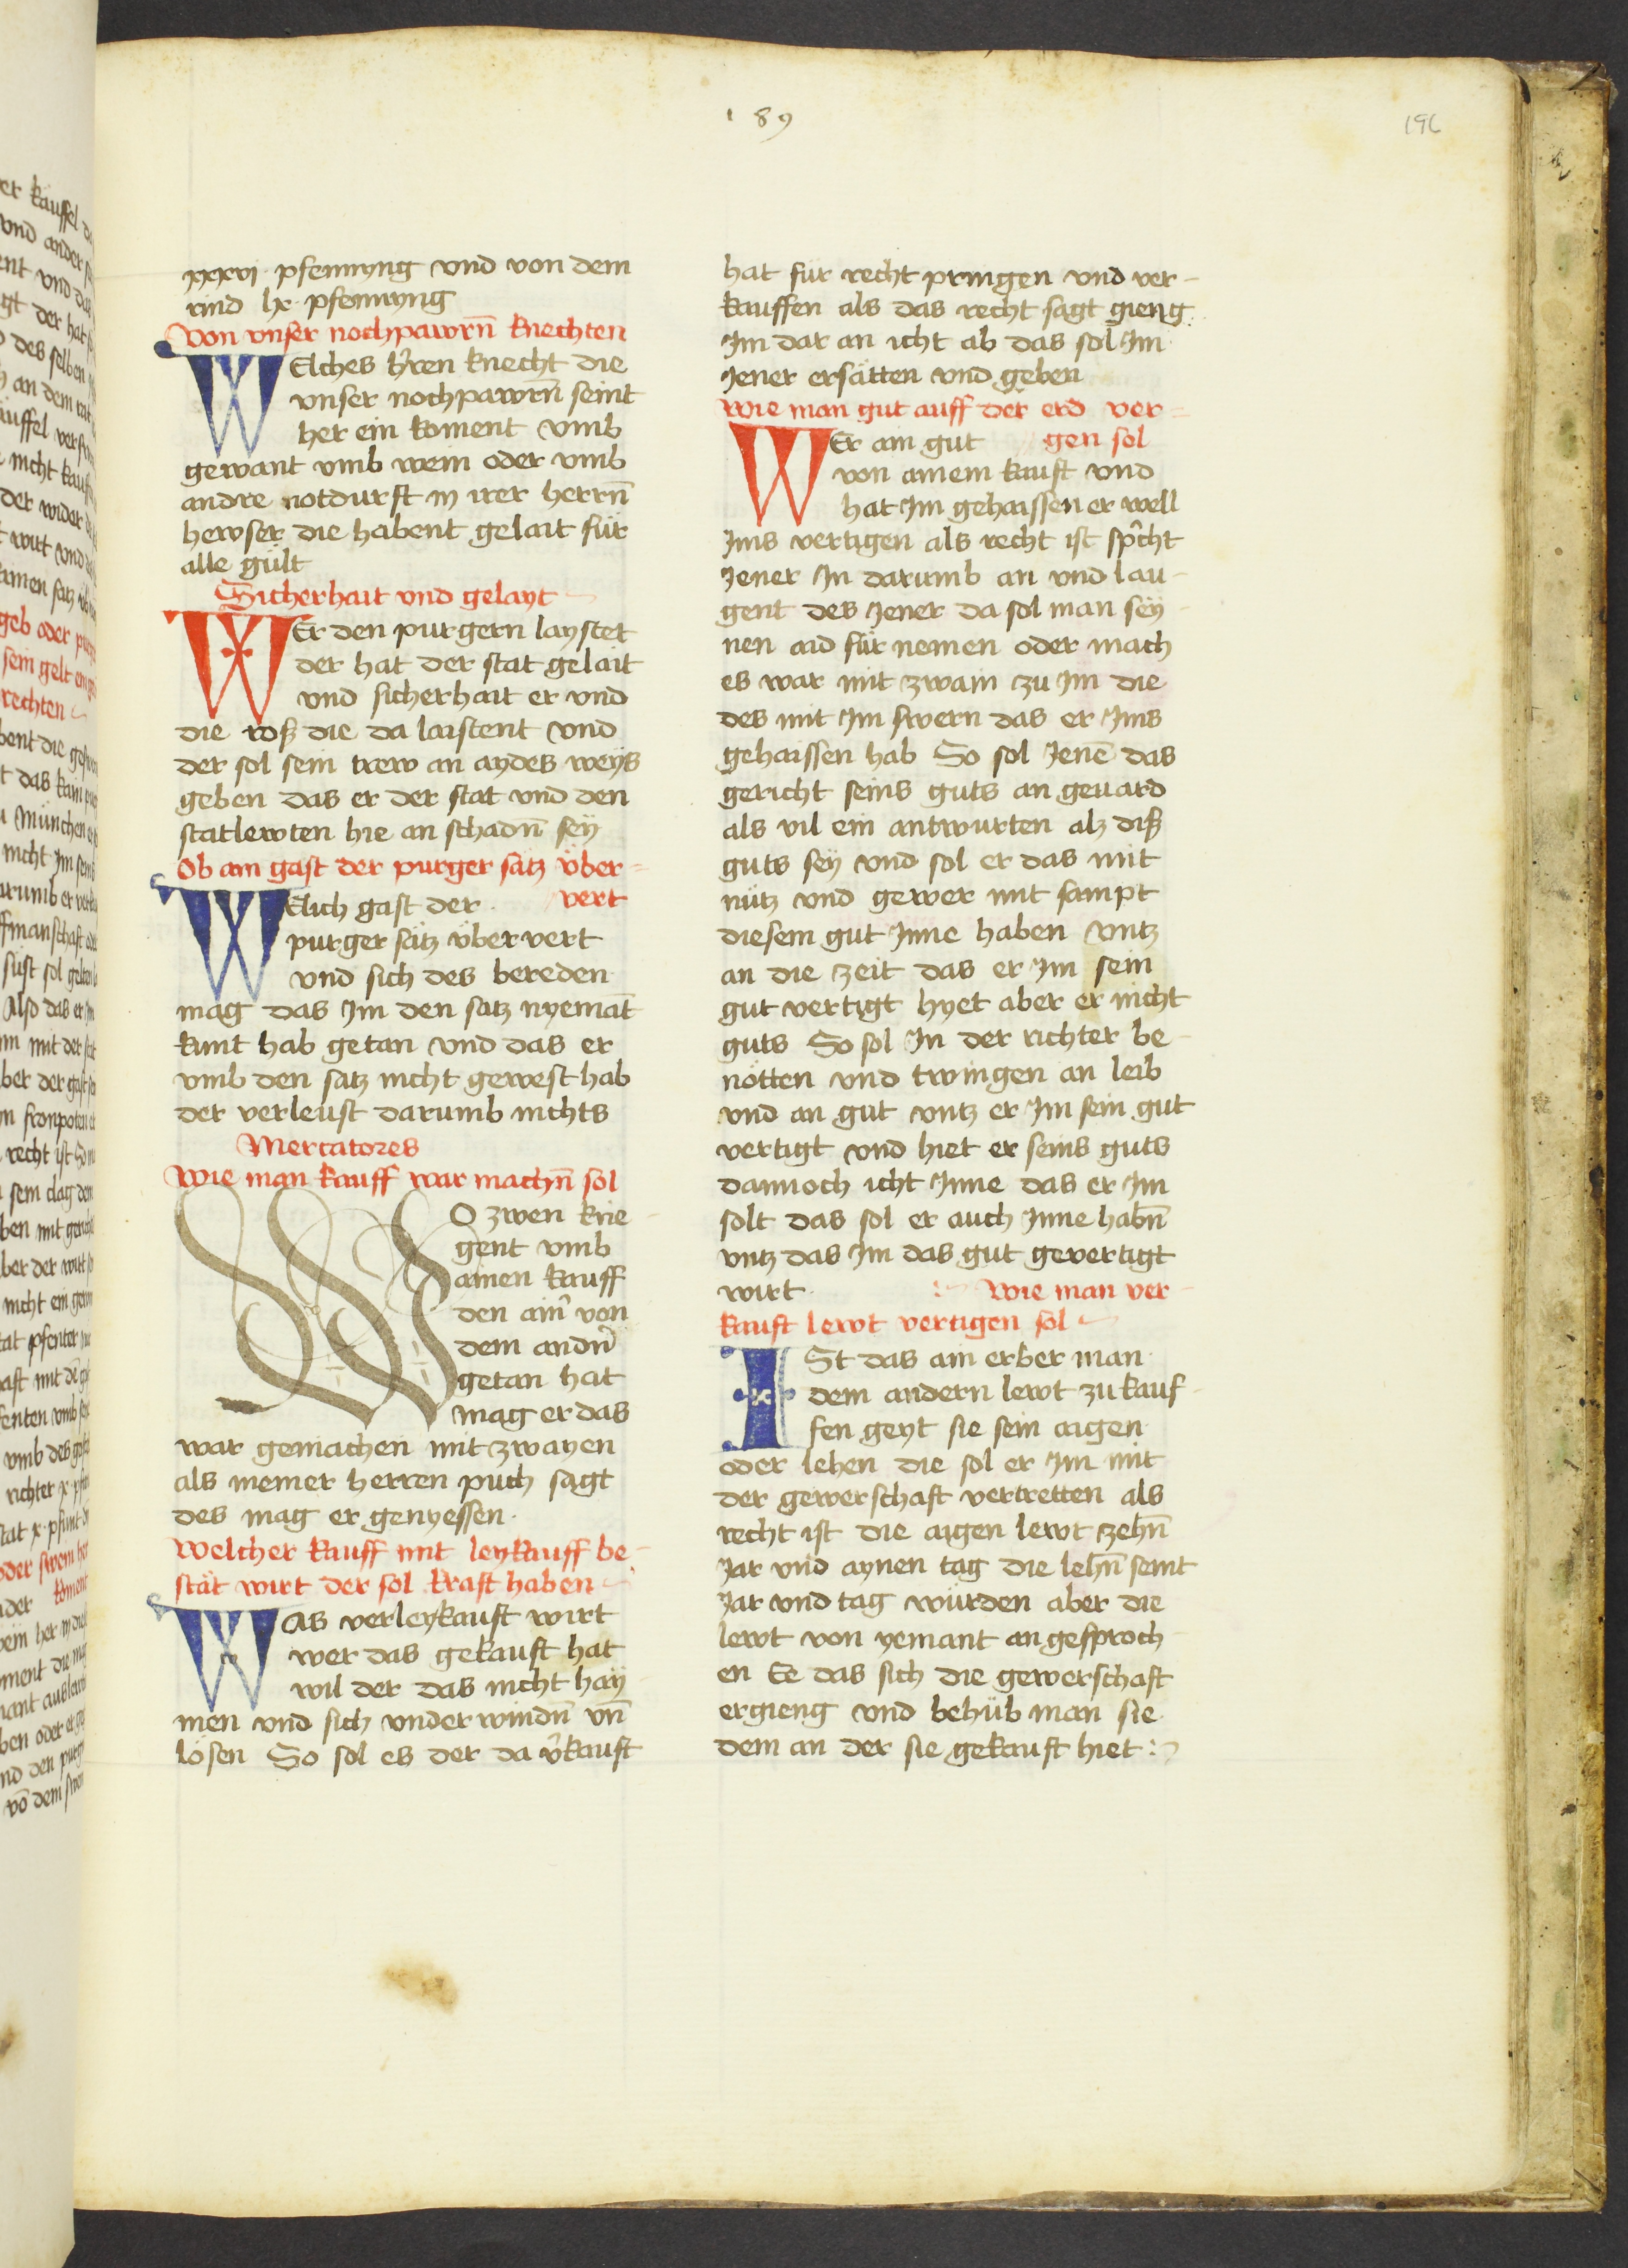 189
196
xxxvi · pfennyng vnd von dem
rind lx · pfennyng
Von vnser nochpawrn̄ knechten
WElches h̉ren knecht die
vnser nochpawrn̄ seint
her ein koment vmb
gewant vmb wein oder vmb
andre notdurft in irer herrn̄
hewser die habent gelait für
alle gült
Sicherhait vnd gelayt
WEr den purgern laystet
der hat der stat gelait
vnd sicherhait er vnd
die roß die da laistent vnd
der sol sein trew an aydes weys
geben das er der stat vnd den
statlewten hie an schadn̄ seÿ
Ob ain gast der purger sätz über=
vert
WElich gast der
purger sätz über vert
vnd sich des bereden
mag das Im den satz nyemāt
kunt hab getan vnd das er
vmb den satz nicht gewest hab
der verleust darumb nichts
Mercatores
Wie man kauff war machn̄ sol
WO zwen krie
gent vmb
ainen kauff
den ain̉ von
dem andn̉
getan hat
mag er das
war gemachen mit zwayen
als meiner herren puch sagt
des mag er genyessen
Welcher kauff mit leykauff be-
stät wirt der sol kraft haben
WAs verleykauft wirt
wer das gekauft hat
wil der das nicht haÿ
men vnd sich vnderwindn̄ vn̄
lösen So sol es der da v̉kauft
hat für recht pringen vnd ver-
kauffen als das recht sagt gieng
Im dar an icht ab das sol Im
Jener ersätten vnd geben
Wie man gut auff der erd ver=
gen sol
WEr ain gut
von ainem kauft vnd
hat Im gehaissen er well
Ims vertigen als recht ist sp̉cht
Jener In darumb an vnd lau-
gent des Jener da sol man seÿ-
nen aid für nemen oder mach
es war mit zwain zu Im die
des mit Im swern das er Ims
gehaissen hab So sol Jenē das
gericht seins guts an geuard
als vil ein antwurten alz diß
guts seÿ vnd sol er das mit
nütz vnd gewer mit sampt
diesem gut Inne haben vntz
an die zeit das er Im sein
gut vertigt hyet aber er nicht
guts So sol In der richter be-
nötten vnd twingen an leib
vnd an gut vntz er Im sein gut
vertigt vnd hiet er seins guts
dannoch icht Inne das er Im
solt das sol er auch Inne habn̄
vntz das Im das gut gevertigt
wirt Wie man ver-
kauft lewt vertigen sol
ISt das ain erber man
dem andern lewt zu kauf-
fen geyt sie sein aigen
oder lehen die sol er Im mit
der gewerschaft vertretten als
recht ist die aigen lewt zehn̄
Jar vnd aynen tag die lehn̄ seint
Jar vnd tag würden aber die
lewt von yemant an gesproch-
en Ee das sich die gewerschaft
ergieng vnd behüb man sie
dem an der sie gekauft hiet :